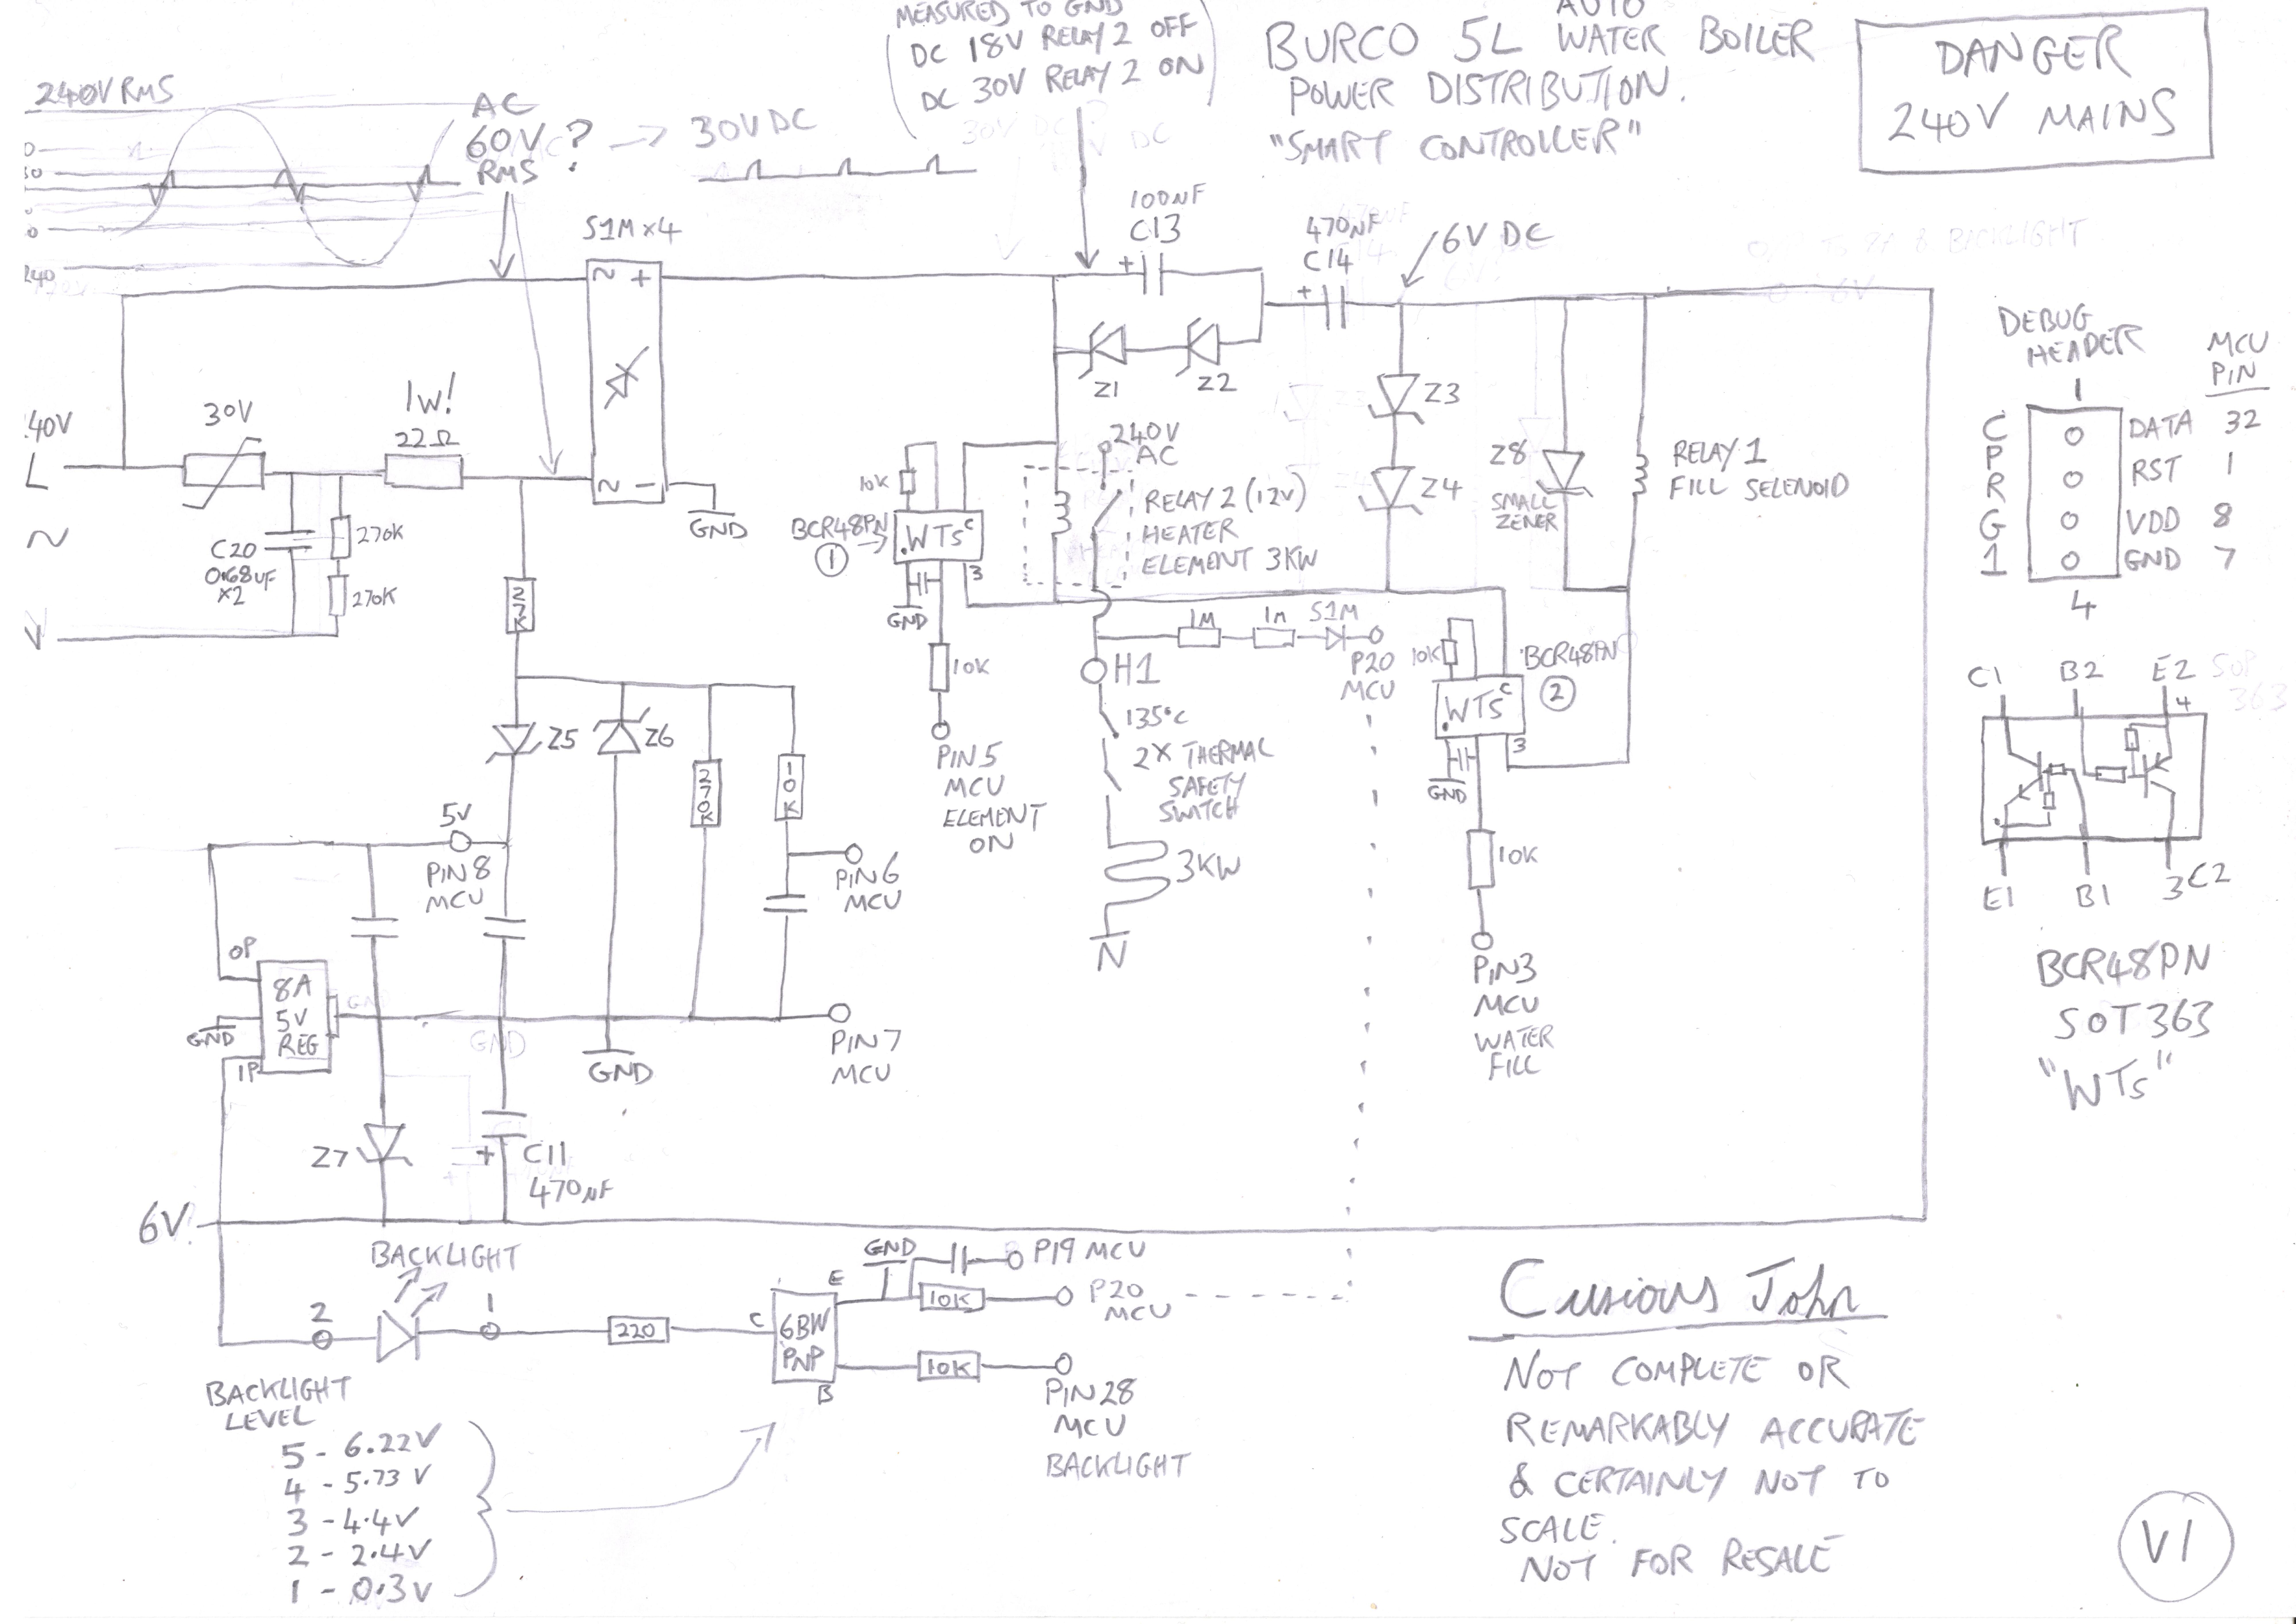 MEASURED TO GND
DC 18V RELAY 2 OFF
DC 30V RELAY 2 ON
AUTO
BURCO 5L WATER BOILER
POWER DISTRIBUTION.
"SMART CONTROLLER"
DANGER
240V MAINS
240V RMS
AC
60V ?
RMS
30V DC
240
S1M x4
~ +
~ −
GND
100NF
C13
+
470NF
C14
+
6V DC
Z1
Z2
40V
L
~
30V
1W!
22Ω
C20
0.68UF
X2
270K
270K
27K
10K
BCR48PN
1
WTs
C
3
GND
10K
PIN5
MCU
ELEMENT
ON
240V
AC
RELAY 2 (12V)
HEATER
ELEMENT 3KW
1M
1M
S1M
P20
MCU
H1
135°C
2X THERMAL
SAFETY
SWITCH
3KW
N
Z3
Z4
Z8
SMALL
ZENER
RELAY 1
FILL SELENOID
10K
BCR48PN
2
WTs
C
3
GND
10K
PIN3
MCU
WATER
FILL
DEBUG
HEADER
MCU
PIN
1
C
P
R
G
1
DATA 32
RST 1
VDD 8
GND 7
4
C1
B2
E2
4
E1
B1
3
C2
BCR48PN
SOT363
"WTs"
Z5
Z6
270K
10K
5V
PIN8
MCU
PIN6
MCU
OP
8A
5V
REG
GND
IP
GND
PIN7
MCU
Z7
+
C11
470NF
6V
BACKLIGHT
2
1
220
C
E
6BW
PNP
B
GND
P19 MCU
10K
P20
MCU
10K
PIN28
MCU
BACKLIGHT
BACKLIGHT
LEVEL
5 - 6.22V
4 - 5.73 V
3 - 4.4V
2 - 2.4V
1 - 0.3V
Curious John
NOT COMPLETE OR
REMARKABLY ACCURATE
& CERTAINLY NOT TO
SCALE.
NOT FOR RESALE
V1